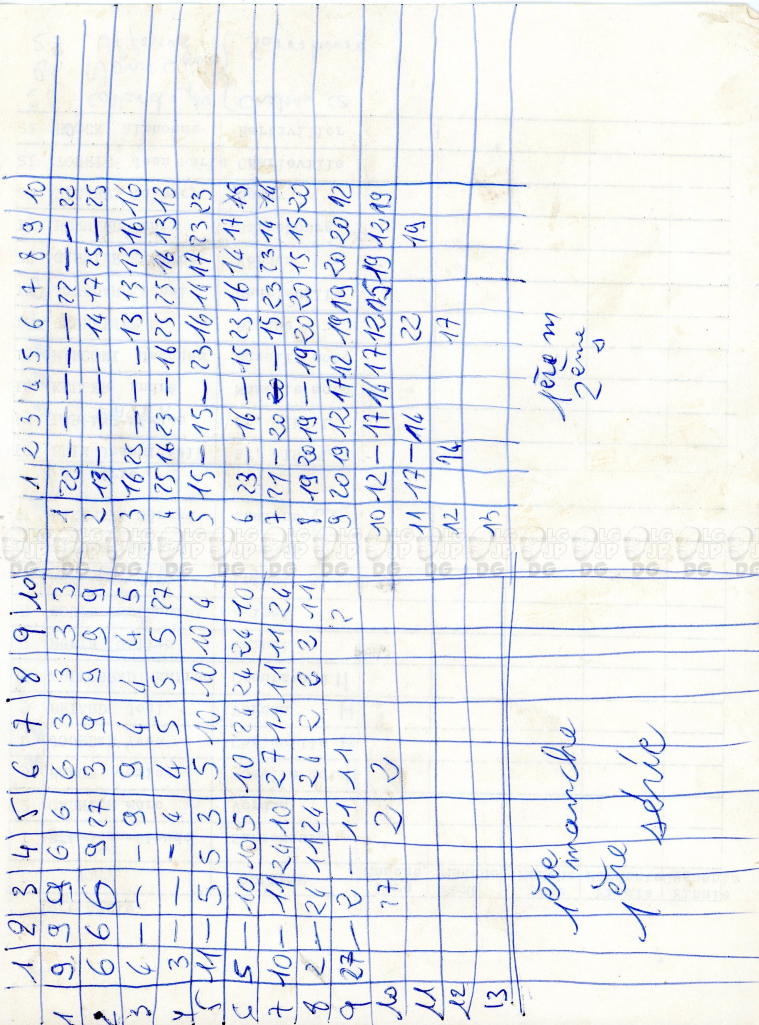 1 2 3 4 5 6 7 8 9 10
1 9 9 9 6 6 6 3 3 3 3
2 6 6 6 9 27 3 9 9 9 9
3 4 – – – 9 9 4 4 4 5
4 3 – – – 4 4 5 5 5 27
5 11 – 5 5 3 5 10 10 10 4
6 5 – 10 10 5 10 24 24 24 10
7 10 – 11 24 10 27 11 11 11 24
8 2 – 24 11 24 24 2 2 2 11
9 27 – 2 – 11 11 2
10 27 2 2
11
12
13
1ère manche
1ère série
1 2 3 4 5 6 7 8 9 10
1 22 – – – – – 22 – – 22
2 13 – – – – 14 17 25 – 25
3 16 25 – – – 13 13 13 16 16
4 25 16 23 – 16 25 25 16 13 13
5 15 – 15 – 23 16 14 17 23 23
6 23 – 16 – 15 23 16 14 17 15
7 21 – 20 20 – 15 23 23 14 14
8 19 20 19 – 19 20 20 15 15 20
9 20 19 12 17 12 19 19 20 20 12
10 12 – 17 14 17 12 15 19 12 19
11 17 – 14 22 19
12 14 17
13
1ère m
2ème s